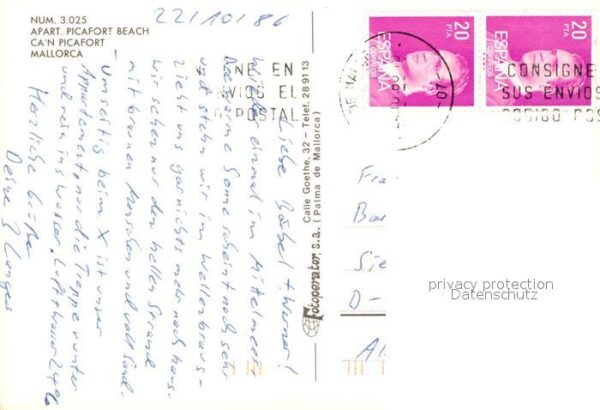 NUM. 3.025
APART. PICAFORT BEACH
CA'N PICAFORT
MALLORCA
22/10/86
Liebe Bärbel + Werner!
Wieder einmal im Mittelmeer
Die Sonne scheint noch sehr
und stehn wir im Wellenbraus -
zieht uns gar nichts mehr nach haus.
wir sehen nur den hellen Strand
mit braunen Menschen und voll Sand.
Umseitig beim X ist unser
Appartement, nur die Treppe runter
und rein ins Wasser. Luft + Wasser 24°
Herzliche Grüße
Deine 3 Langes
Fotoperator, s.a.
Calle Goethe, 32 - Telef. 28 91 13
(Palma de Mallorca)
20
PTA
ESPAÑA
20
PTA
ESPAÑA
NE EN
VIOS EL
POSTAL
CONSIGNE
SUS ENVIOS
CODIGO POS
Fra
Bar
Sie
D-
privacy protection
Datenschutz